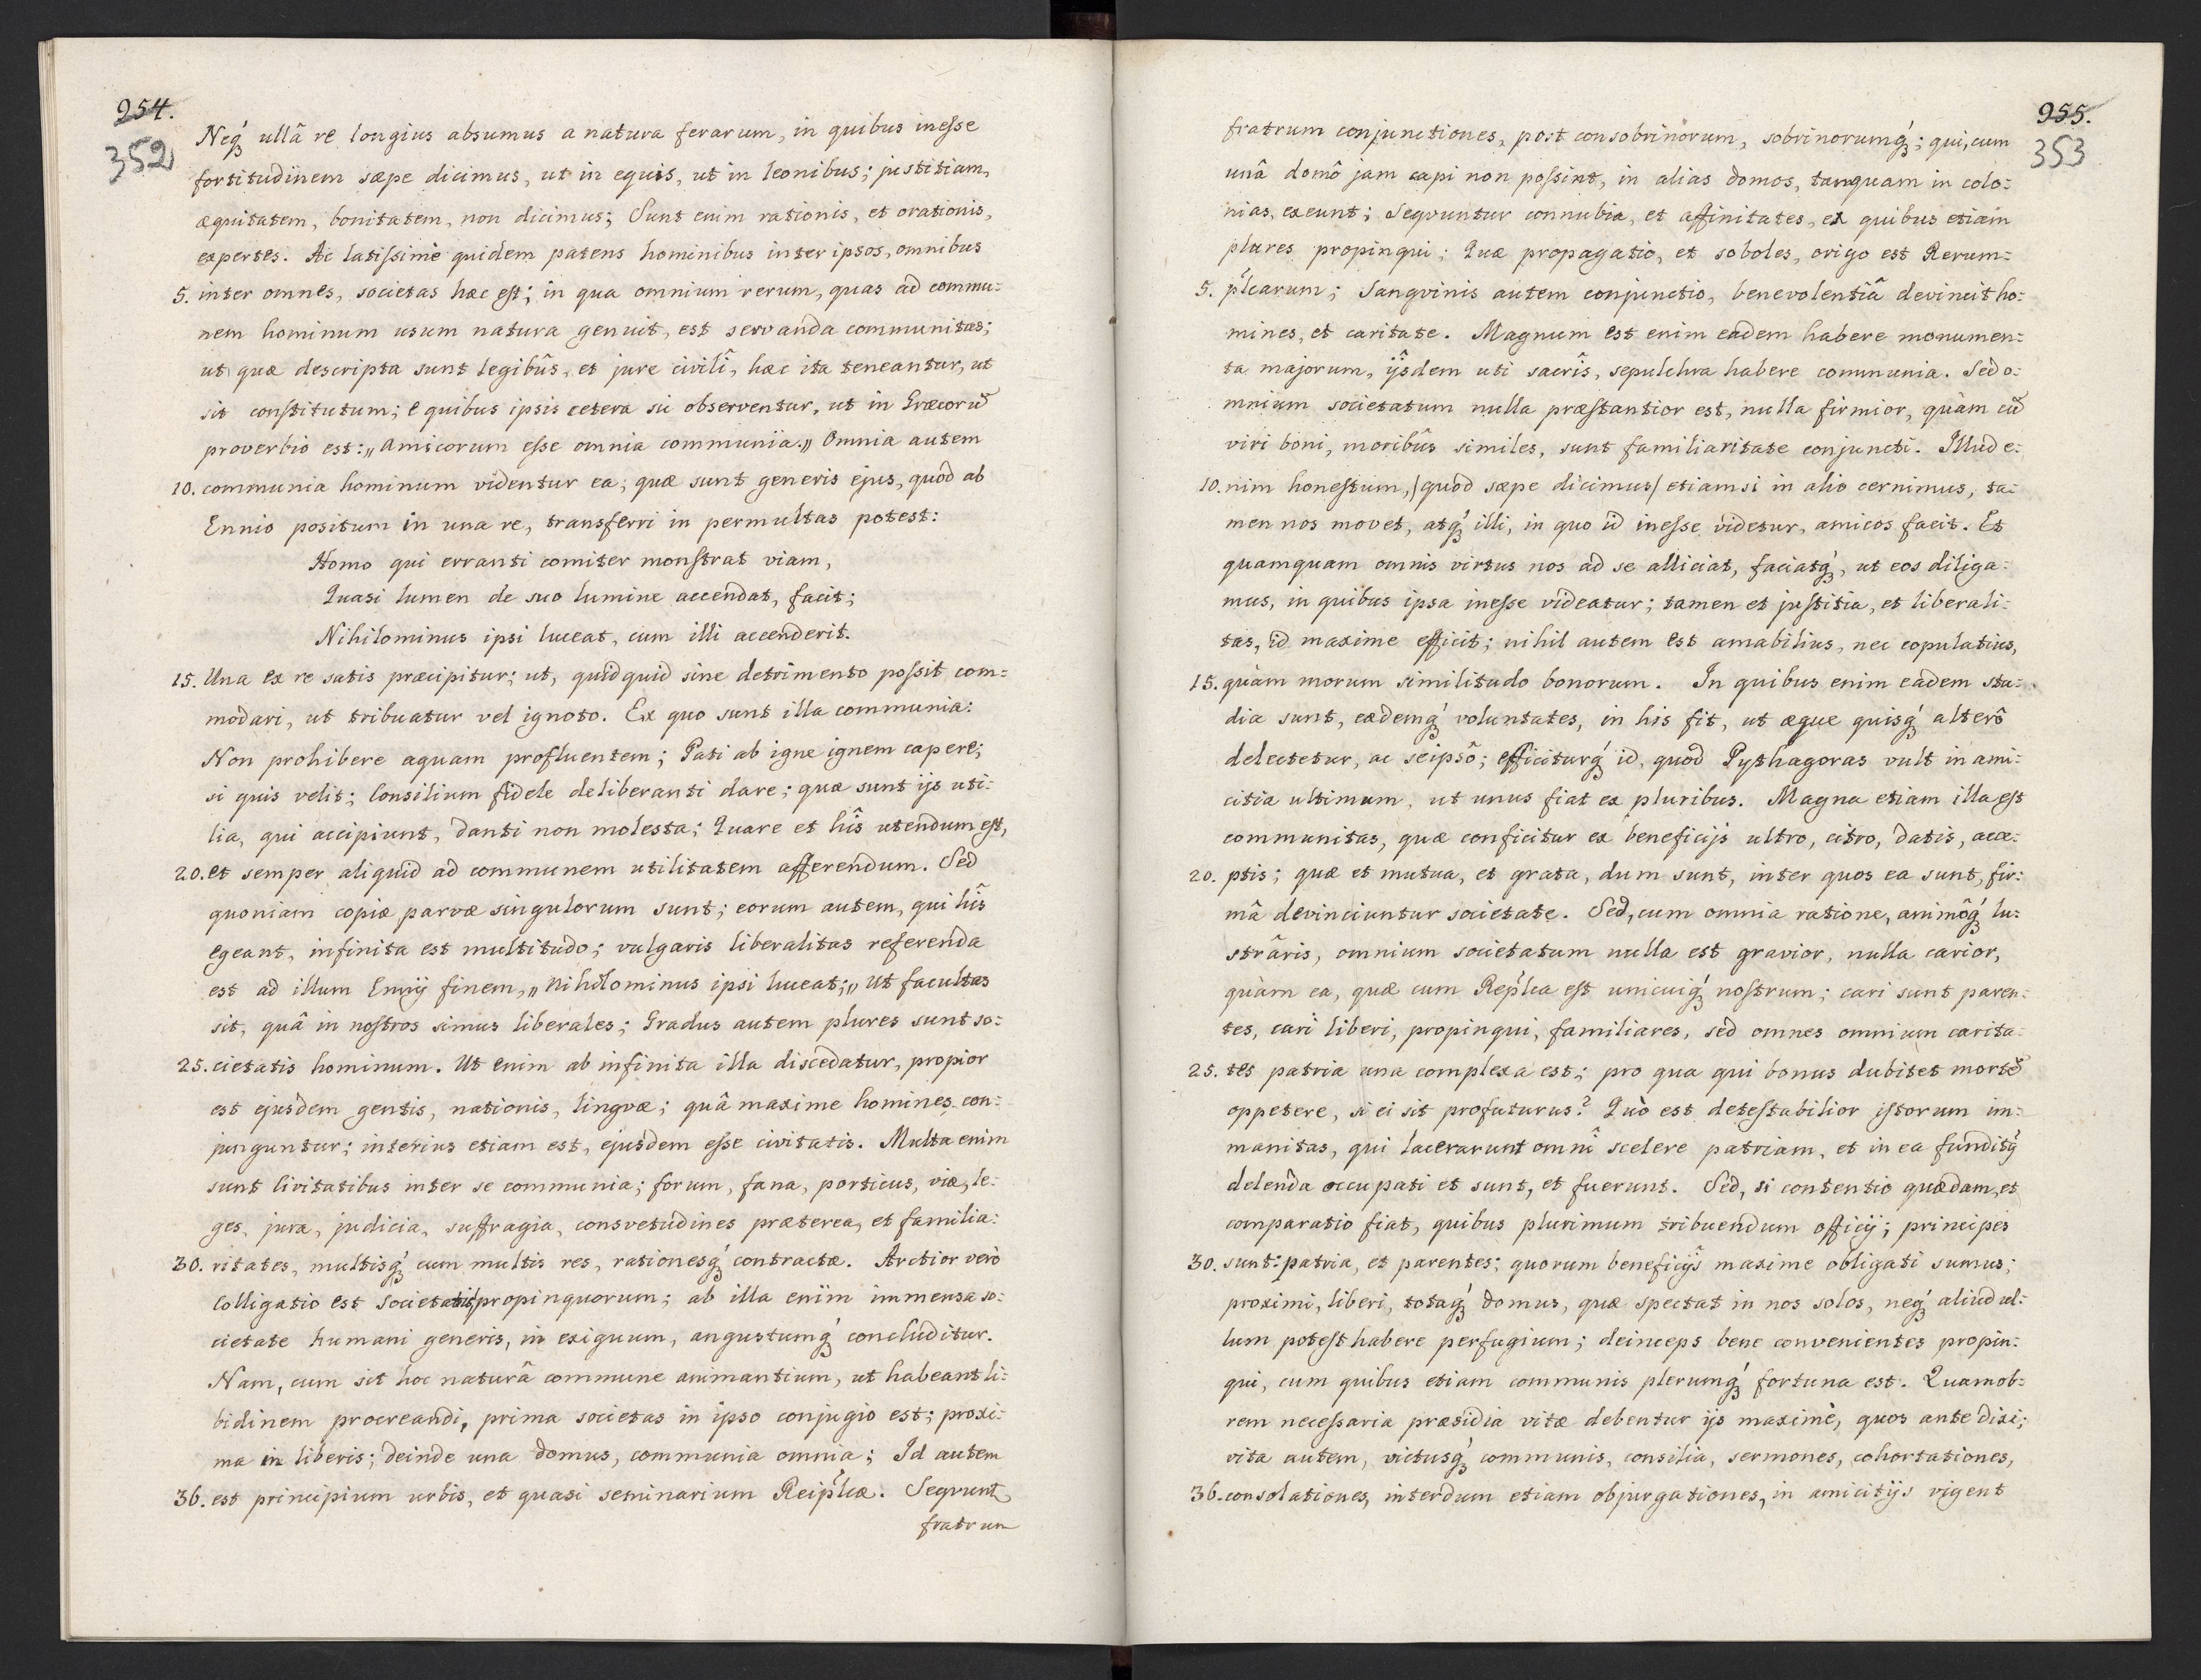 954.
352
Neq́ȝ ullâ re longius absumus a natura ferarum, in quibus inesse
fortitudinem sæpe dicimus, ut in equis, ut in leonibus; justitiam,
æquitatem, bonitatem, non dicimus; Sunt enim rationis, et orationis,
expertes. Ac latissimè quidem patens hominibus inter ipsos, omnibus
5. inter omnes, societas hæc est; in qua omnium rerum, quas ad commu:
nem hominum usum natura genuit, est servanda communitas;
ut quæ descripta sunt legibûs, et jure civilî, hæc ita teneantur, ut
sit constitutum; e quibus ipsis cetera sic observentur, ut in Græcorū
proverbio est: „Amicorum esse omnia communia.„ Omnia autem
10. communia hominum videntur ea, quæ sunt generis ejus, quod ab
Ennio positum in una re, transferri in permultas potest:
Homo qui erranti comiter monstrat viam,
Quasi lumen de suo lumine accendat, facit;
Nihilominus ipsi luceat, cum illi accenderit.
15. Una ex re satis præcipitur; ut, quidquid sine detrimento possit com:
modari, ut tribuatur vel ignoto. Ex quo sunt illa communia:
Non prohibere aquam profluentem; Pati ab igne ignem capere;
si quis velit; Consilium fidele deliberanti dare; quæ sunt ijs uti:
lia, qui accipiunt, danti non molesta; Quare et hîs utendum est,
20. et semper aliquid ad communem utilitatem afferendum. Sed
quoniam copiæ parvæ singulorum sunt; eorum autem, qui hîs
egeant, infinita est multitudo; vulgaris liberalitas referenda
est ad illum Ennij finem, „Nihilominus ipsi luceat;„ Ut facultas
sit, quâ in nostros simus liberales; Gradus autem plures sunt so:
25. cietatis hominum. Ut enim ab infinita illa discedatur, propior
est ejusdem gentis, nationis, lingvæ; quâ maxime homines con:
junguntur; interius etiam est, ejusdem esse civitatis. Multa enim
sunt Civitatibus inter se communia; forum, fana, porticus, viæ, le:
ges, jura, judicia, suffragia, consvetudines præterea, et familia:
30. ritates, multisq́ȝ cum multis res, rationesq́ȝ contractæ. Arctior verò
Colligatio est Societatis propinquorum; ab illa enim immensa so:
cietate humani generis, in exiguum, angustumq́ȝ concluditur.
Nam, cum sit hoc naturâ commune animantium, ut habeant li:
bidinem procreandi, prima societas in ipso conjugio est; proxi:
ma in liberis; deinde una domus, communia omnia; Id autem
36. est principium urbis, et quasi seminarium Reip̃lcæ. Seqvunt
fratrum
955.
353
fratrum conjunctiones, post consobrinorum, sobrinorumq́ȝ; qui, cum
unâ domô jam capi non possint, in alias domos, tanquam in colo:
nias, exeunt; Seqvuntur connubia, et affinitates, ex quibus etiam
plures propinqui; Quæ propagatio, et soboles, origo est Rerum:
5. p̃lcarum; Sangvinis autem conjunctio, benevolentiâ devincit ho:
mines, et caritate. Magnum est enim eadem habere monumen:
ta majorum, ijsdem uti sacrîs, sepulchra habere communia. Sed o:
mnium societatum nulla præstantior est, nulla firmior, quàm cū
viri boni, moribûs similes, sunt familiaritate conjuncti. Illud e:
10. nim honestum, /quod sæpe dicimus/ etiamsi in alio cernimus, ta:
men nos movet, atq́ȝ illi, in quo id inesse videtur, amicos facit. Et
quamquam omnis virtus nos ad se alliciat, faciatq́ȝ, ut eos diliga:
mus, in quibus ipsa inesse videatur; tamen et justitia, et liberali:
tas, id maxime efficit; nihil autem est amabilius, nec copulatius,
15. quàm morum similitudo bonorum. In quibus enim eadem stu:
dia sunt, eædemq́ȝ voluntates, in his fit, ut æque quisq́ȝ alterô
delectetur, ac seipsô; efficiturq́ȝ id, quod Pythagoras vult in ami:
citia ultimum, ut unus fiat ex pluribus. Magna etiam illa est
communitas, quæ conficitur ex beneficijs ultro, citro, datis, acce:
20. ptis; quæ et mutua, et grata, dum sunt, inter quos ea sunt, fir:
mâ devinciuntur societate. Sed, cum omnia ratione, animôq́ȝ lu:
strâris, omnium societatum nulla est gravior, nulla carior,
quàm ea, quæ cum Rep̃lca est unicuiq́ȝ nostrum; cari sunt paren:
tes, cari liberi, propinqui, familiares, sed omnes omnium carita:
25. tes patria una complexa est; pro qua qui bonus dubitet mortē
oppetere, si ei sit profuturus? Quò est detestabilior istorum im:
manitas, qui lacerarunt omnî scelere patriam, et in ea funditq́
delenda occupati et sunt, et fuerunt. Sed, si contentio quædam, et
comparatio fiat, quibus plurimum tribuendum officij; principes
30. sunt: patria, et parentes; quorum beneficijs maxime obligati sumus;
proximi, liberi, totaq́ȝ domus, quæ spectat in nos solos, neq́ȝ aliud ul:
lum potest habere perfugium; deinceps bene convenientes propin:
qui, cum quibus etiam communis plerumq́ȝ fortuna est. Quamob:
rem necessaria præsidia vitæ debentur ijs maximè, quos ante dixi;
vita autem, victusq́ȝ communis, consilia, sermones, cohortationes,
36. consolationes, interdum etiam objurgationes, in amicitijs vigent